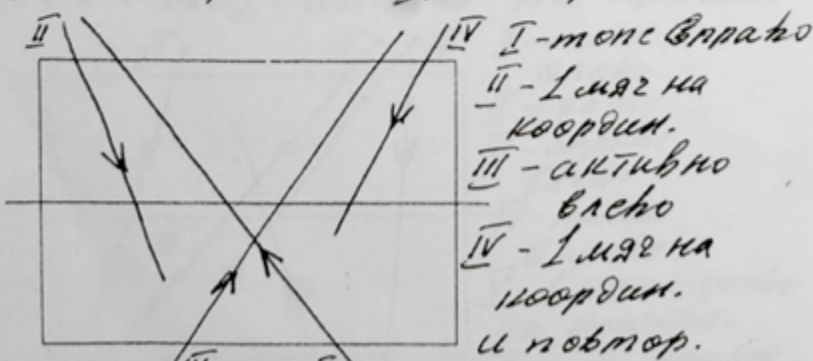 II
IV
I - топс вправо
II - 1 мяч на
координ.
III - активно
влево
IV - 1 мяч на
координ.
и повтор.
III
I